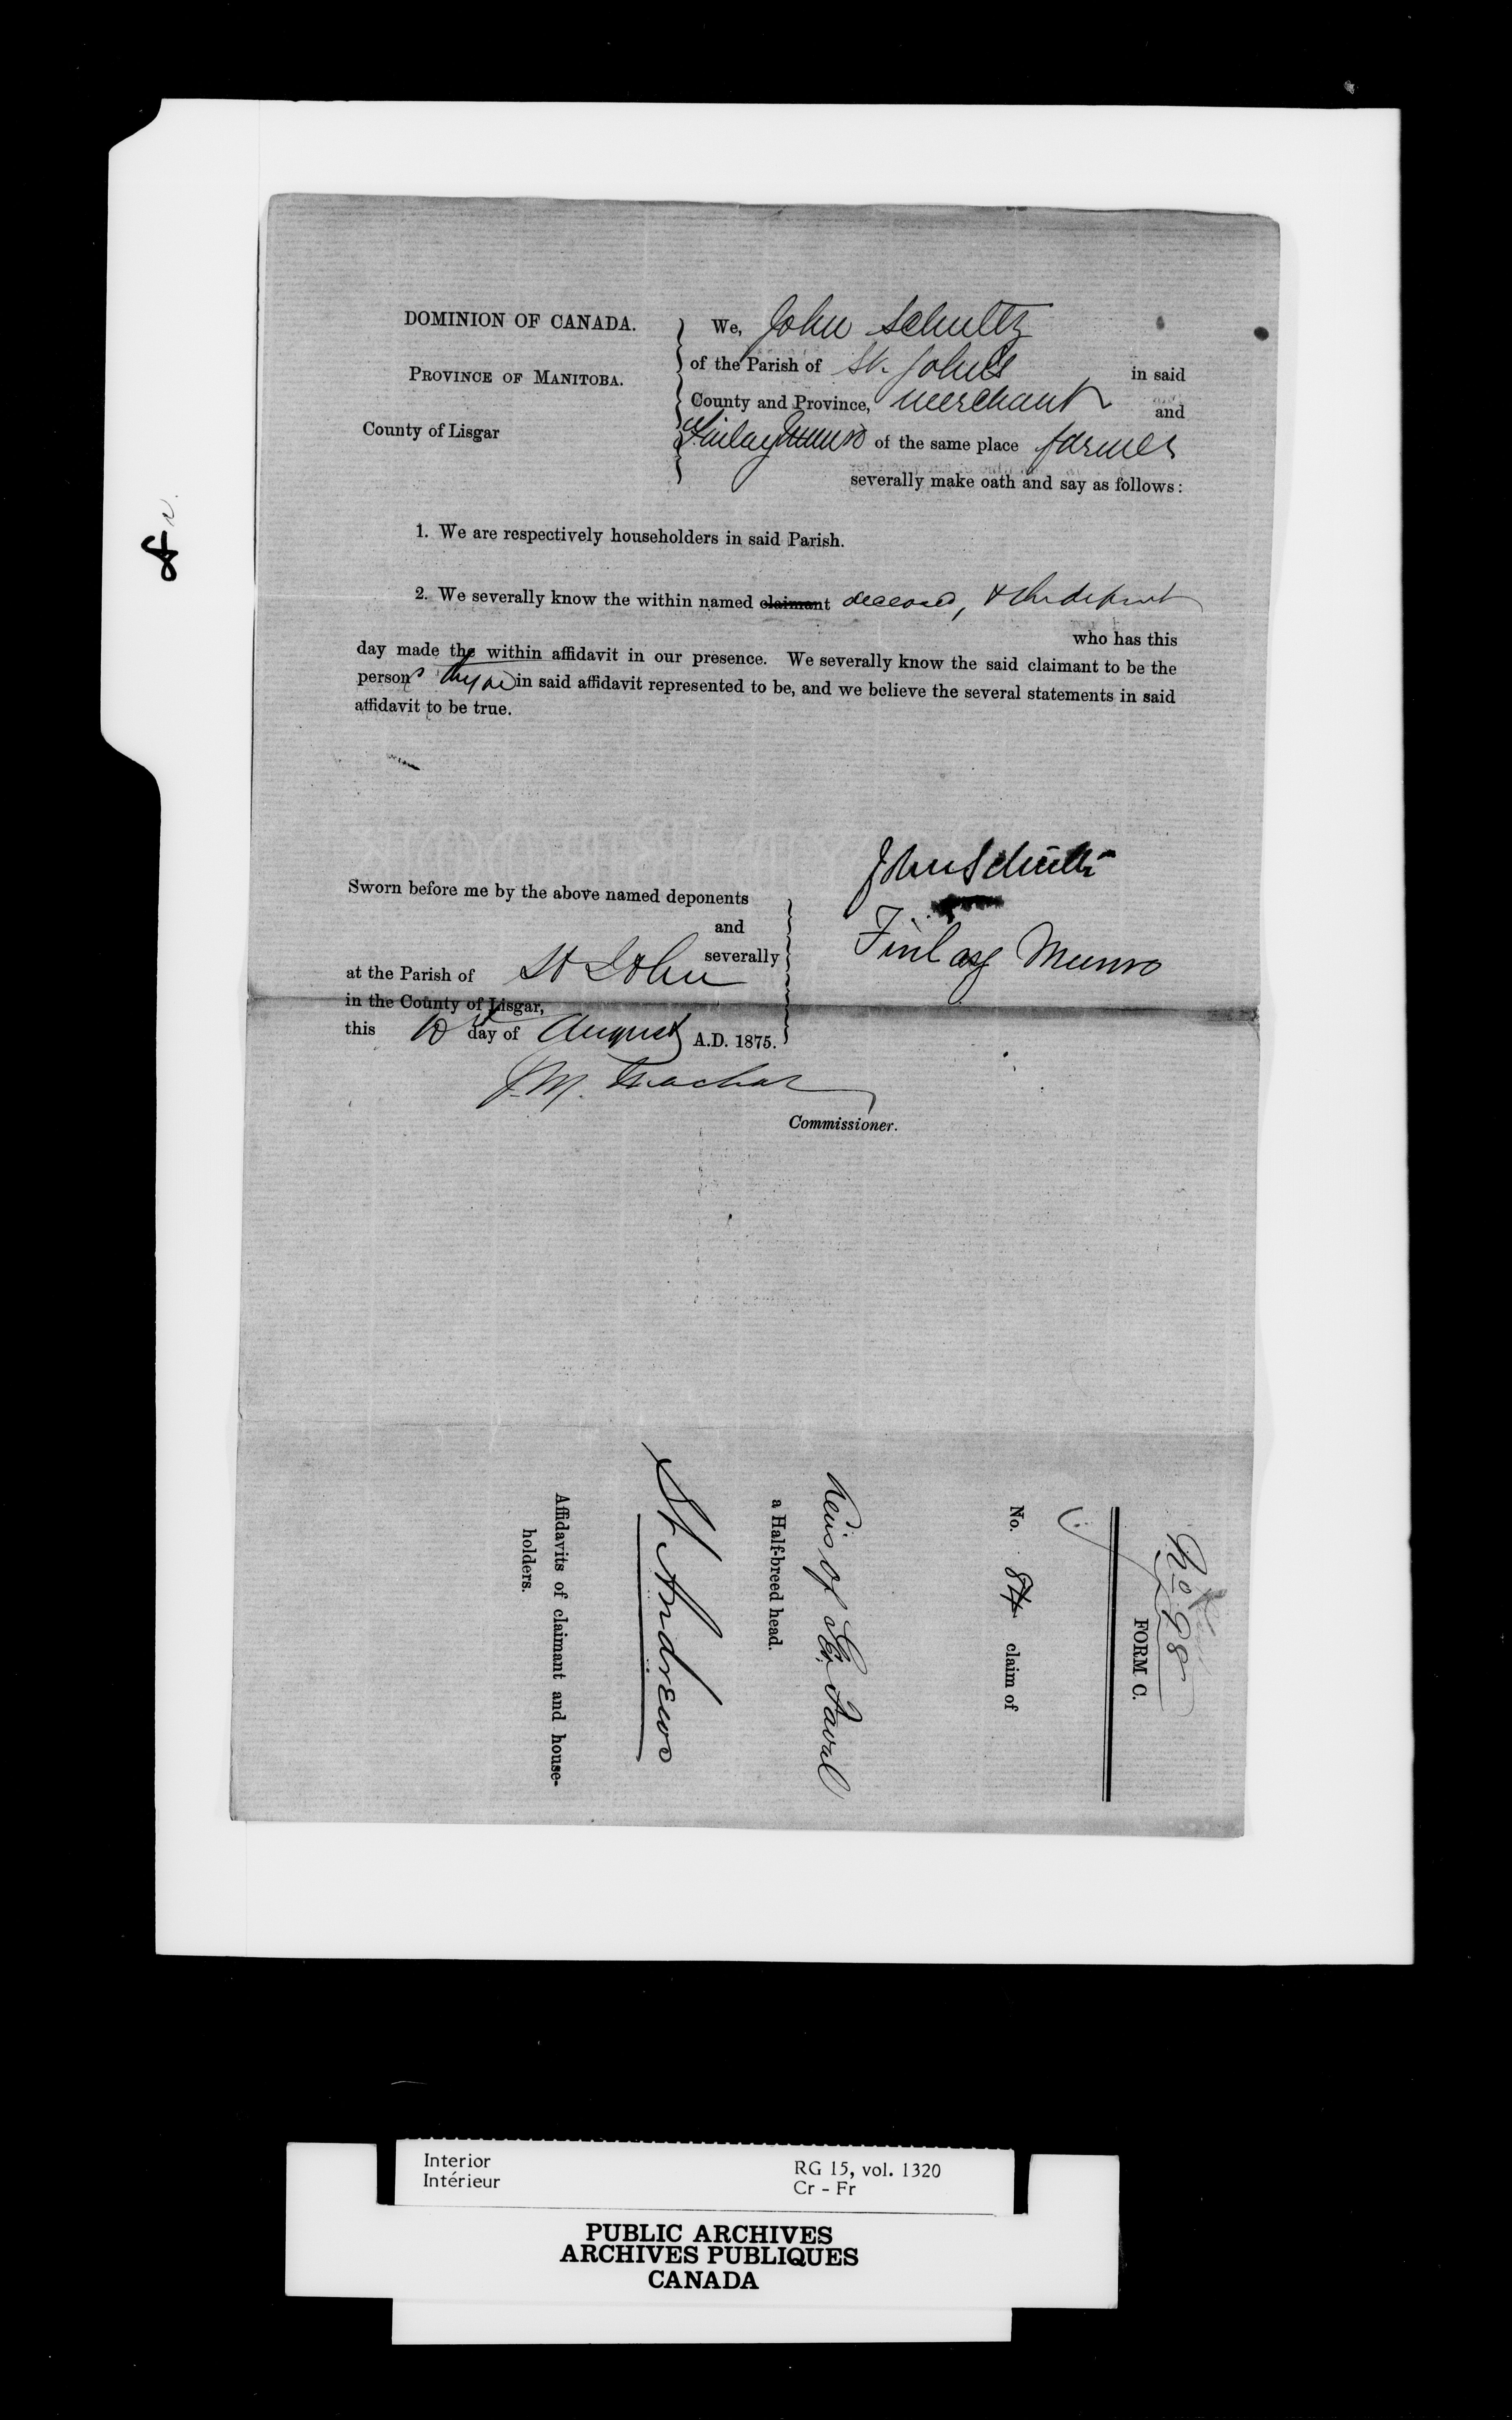 DOMINION OF CANADA.
PROVINCE OF MANITOBA.
County of Lisgar
We, John Schultz
of the Parish of St. John's in said
County and Province, merchant and
Finlay Munro of the same place farmer
severally make oath and say as follows:
1. We are respectively householders in said Parish.
2. We severally know the within named claimant deceased, & the deponent
who has this
day made the within affidavit in our presence. We severally know the said claimant to be the
persons they are in said affidavit represented to be, and we believe the several statements in said
affidavit to be true.
Sworn before me by the above named deponents
and
severally
at the Parish of St John
in the County of Lisgar,
this day of August A.D. 1875.
John Schultz
Finlay Munro
J. M. Machar
Commissioner.
No 98
FORM C.
No. 84 claim of
Heirs of Faval
a Half-breed head.
St Andrews
Affidavits of claimant and house-
holders.
Interior
Intérieur
RG 15, vol. 1320
Cr - Fr
PUBLIC ARCHIVES
ARCHIVES PUBLIQUES
CANADA